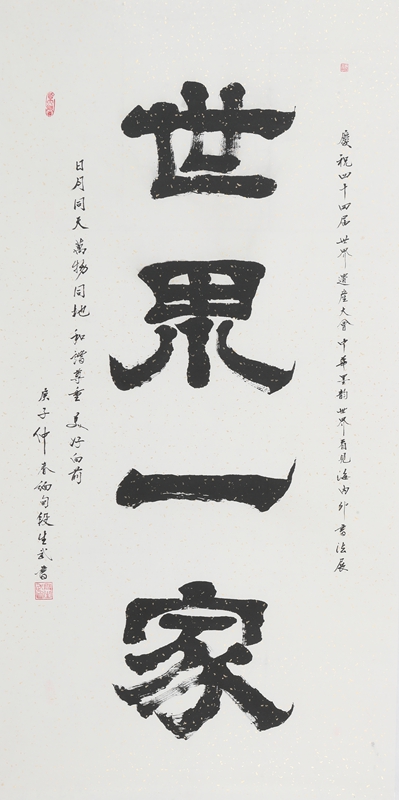 慶祝四十四届世界遺產大會中華墨韵世界看見海内外書法展
世界一家
日月同天萬物同地和諧尊重美好向前
庚子仲春段生武書